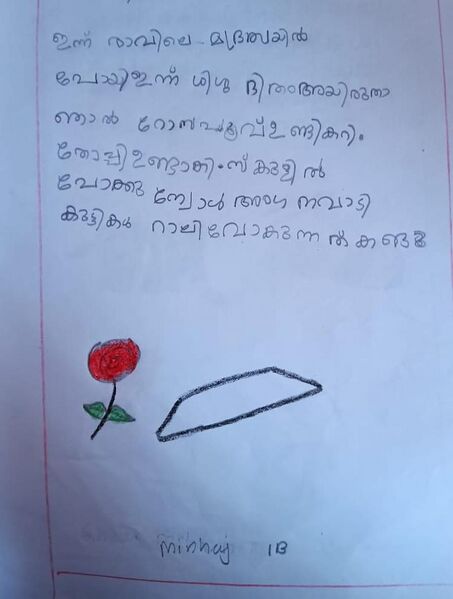 ഇന്ന് രാവിലെ മദ്രസയിൽ
പോയിഇന്ന് ശിശു ദിനംഅയിരുന്നാ
ഞാൽ റോസപൂവ്ഉണ്ടികറി.
തോപ്പിഉണ്ടാകി.സ്കുളിൽ
പോക്കു മ്പോൾ അംഗനവാടി
കുട്ടികൾ റാലിപോകുന്നൽ കണ്ടു
minhaj 1B